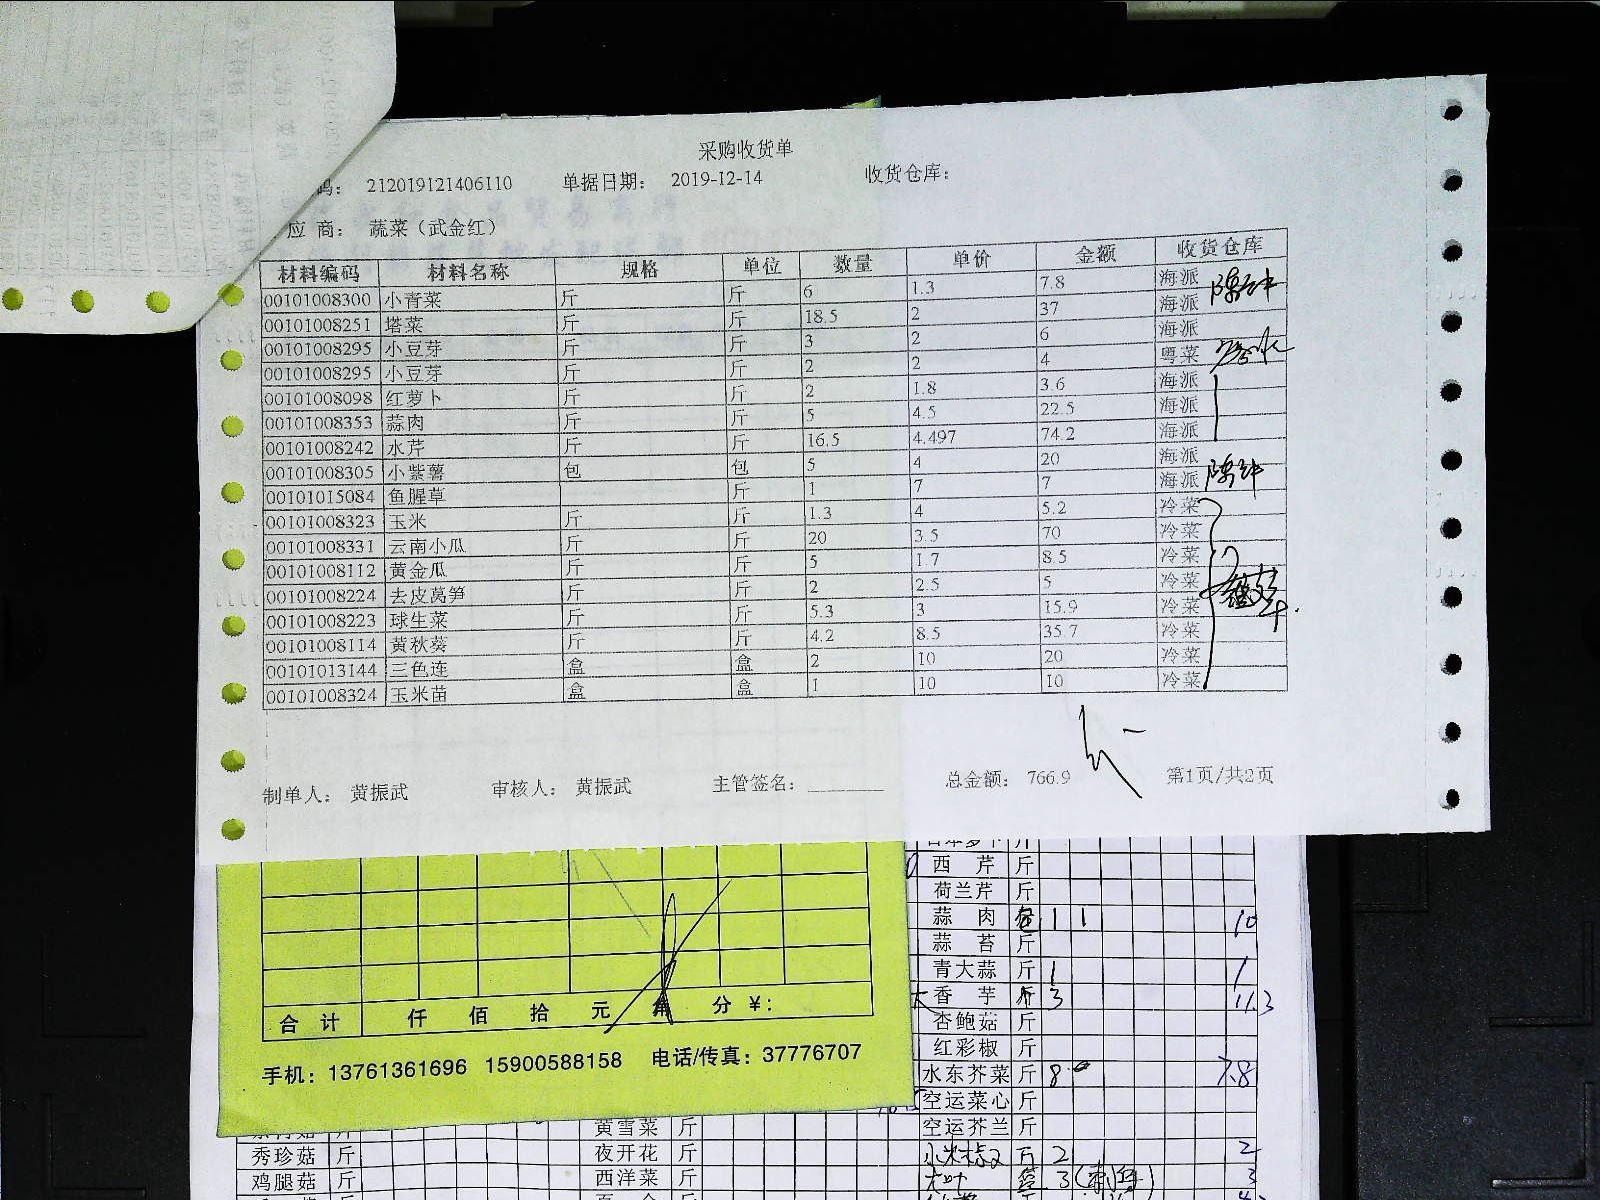 采购收货单
码： 212019121406110 单据日期： 2019-12-14 收货仓库：
应 商： 蔬菜（武金红）
材料编码 材料名称 规格 单位 数量 单价 金额 收货仓库
00101008300 小青菜 斤 斤 6 1.3 7.8 海派
00101008251 塔菜 斤 斤 18.5 2 37 海派
00101008295 小豆芽 斤 斤 3 2 6 海派
00101008295 小豆芽 斤 斤 2 2 4 粤菜
00101008098 红萝卜 斤 斤 2 1.8 3.6 海派
00101008353 蒜肉 斤 斤 5 4.5 22.5 海派
00101008242 水芹 斤 斤 16.5 4.497 74.2 海派
00101008305 小紫薯 包 包 5 4 20 海派
00101015084 鱼腥草 斤 1 7 7 海派
00101008323 玉米 斤 斤 1.3 4 5.2 冷菜
00101008331 云南小瓜 斤 斤 20 3.5 70 冷菜
00101008112 黄金瓜 斤 斤 5 1.7 8.5 冷菜
00101008224 去皮莴笋 斤 斤 2 2.5 5 冷菜
00101008223 球生菜 斤 斤 5.3 3 15.9 冷菜
00101008114 黄秋葵 斤 斤 4.2 8.5 35.7 冷菜
00101013144 三色连 盒 盒 2 10 20 冷菜
00101008324 玉米苗 盒 盒 1 10 10 冷菜
制单人： 黄振武 审核人： 黄振武 主管签名： 总金额： 766.9 第1页/共2页
西 芹 斤
荷兰芹 斤
蒜 肉 1 1 10
蒜 苔 斤
青大蒜 斤 1 1
香 芋 斤 3 11.3
杏鲍菇 斤
红彩椒 斤
水东芥菜 斤 8 7.8
空运菜心 斤
空运芥兰 斤
小米椒 斤 2 2
合 计 仟 佰 拾 元 角 分 ￥：
手机：13761361696 15900588158 电话/传真：37776707
黄雪菜 斤
秀珍菇 斤 夜开花 斤
鸡腿菇 斤 西洋菜 斤